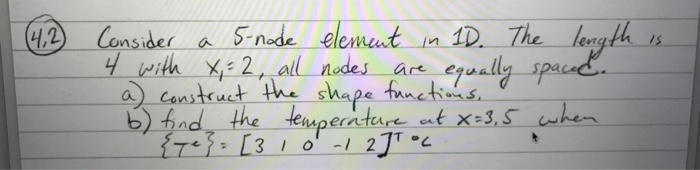 4.2 Consider a 5-node element in 1D. The length is
4 with x₁=2, all nodes are equally spaced.
a) construct the shape functions.
b) find the temperature at x=3.5 when
{Tᵉ}=[3 1 0 -1 2]ᵀ °C